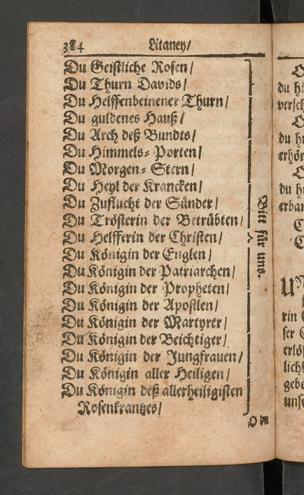 384 Litaney/
Du Geistliche Rosen/
Du Thurn Davids/
Du Helffenbeinener Thurn/
Du guldenes Hauß/
Du Arch deß Bundts/
Du Himmels-Porten/
Du Morgen-Stern/
Du Heyl der Krancken/
Du Zuflucht der Sünder/
Du Trösterin der Betrübten/
Du Helfferin der Christen/
Du Königin der Englen/
Du Königin der Patriarchen/
Du Königin der Propheten/
Du Königin der Apostlen/
Du Königin der Martyrer/
Du Königin der Beichtiger/
Du Königin der Jungfrauen/
Du Königin aller Heiligen/
Du Königin deß allerheiligisten
Rosenkrantzes/
Bitt für uns.